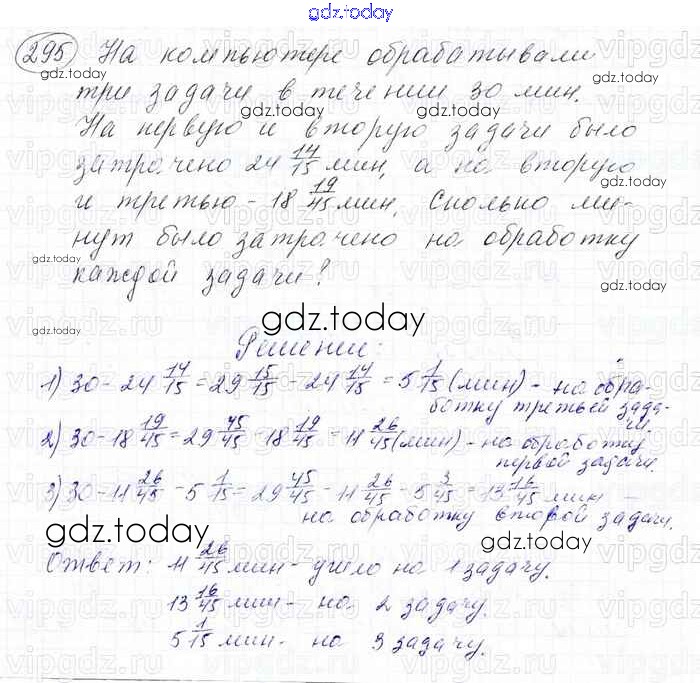 gdz.today
295 На компьютере обрабатывали
три задачи в течении 30 мин.
На первую и вторую задачи было
затрачено 24 14/15 мин, а на вторую
и третью - 18 19/45 мин. Сколько ми-
нут было затрачено на обработку
каждой задачи?
gdz.today
Решение:
1) 30 - 24 14/15 = 29 15/15 - 24 14/15 = 5 1/15 (мин) - на обра-
ботку третьей зада-
чи.
2) 30 - 18 19/45 = 29 45/45 - 18 19/45 = 11 26/45 (мин) - на обработку
первой задачи.
3) 30 - 11 26/45 - 5 1/15 = 29 45/45 - 11 26/45 - 5 3/45 = 13 16/45 мин -
на обработку второй задачи.
gdz.today
Ответ: 11 26/45 мин - ушло на 1 задачу.
13 16/45 мин - на 2 задачу.
5 1/15 мин - на 3 задачу.